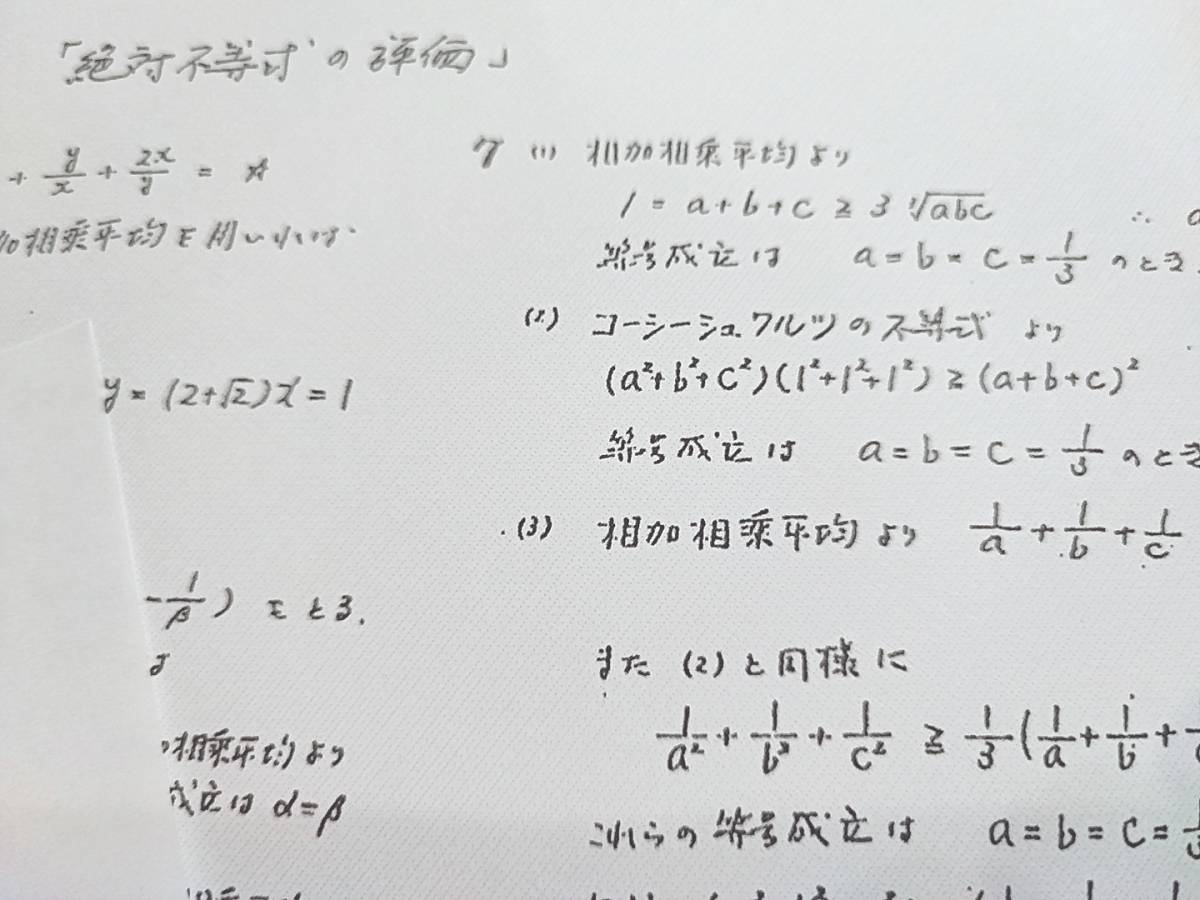 「絶対不等式の評価」
+ y/x + 2x/y =
加相乗平均を用いれば
y = (2+√2)x = 1
-1/β) をとる.
相乗平均より
成立は α=β
7 (1) 相加相乗平均より
1 = a+b+c ≧ 3 ³√abc ∴
等号成立は a = b = c = 1/3 のとき
(2) コーシーシュワルツの不等式より
(a²+b²+c²)(1²+1²+1²) ≧ (a+b+c)²
等号成立は a = b = c = 1/3 のとき
(3) 相加相乗平均より 1/a + 1/b + 1/c
また (2) と同様に
1/a² + 1/b² + 1/c² ≧ 1/3 (1/a + 1/b +
これらの等号成立は a = b = c =